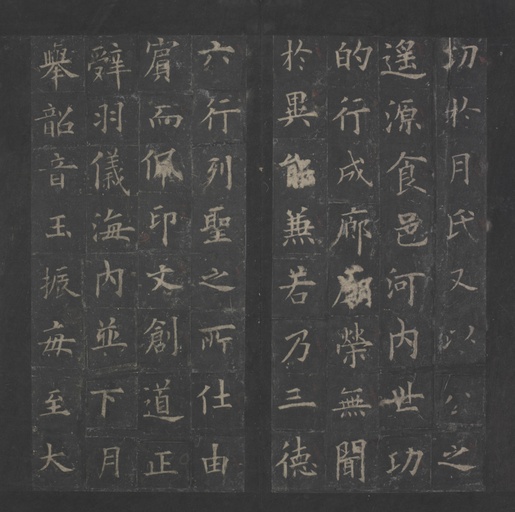 功於月氏又以公之
遙源食邑河内世功
的行成廊廟榮無閒
於異能兼若乃三德
六行列聖之所仕由
賓而佩印文創道正
辭羽儀海内並下月
舉韶音玉振每至大